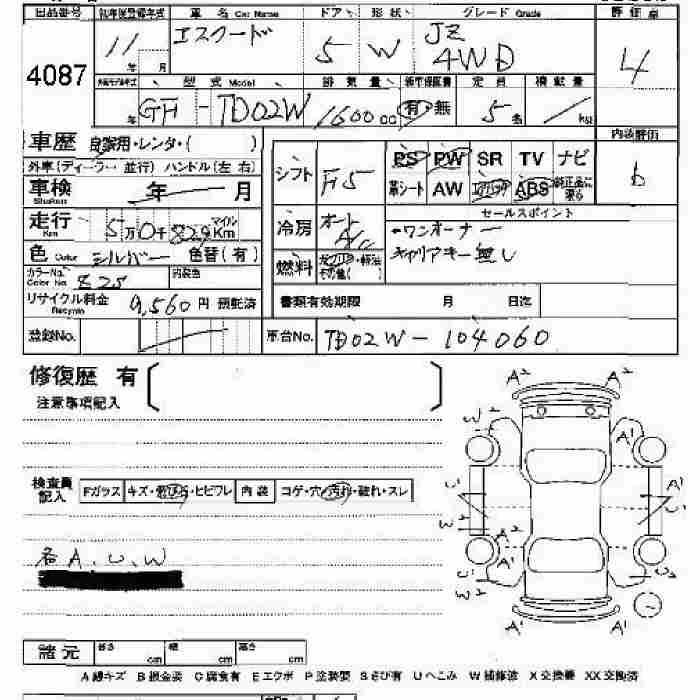 出品番号 初年度登録年式 車名 Car Name ドア 形状 グレード Grade 評価点
4087 11年 月 エスクード 5 W JZ 4WD 4
型式 Model 排気量 新車保証書 定員 積載量
年 GF-TD02W 1600 cc 有・無 5名 / kg
車歴 自家用・レンタ・( ) 内装評価
外車(ディーラー 並行) ハンドル(左 右) シフト F5 PS PW SR TV ナビ b
革シート AW エアバッグ ABS 純正品に限る
車検 年 月
Shaken
走行 5万0千829Km マイル
Km
冷房 オート A/C セールスポイント
ワンオーナー
キャリアキー無し
色 Color シルバー 色替(有)
燃料 ガソリン・軽油 その他( )
カラーNo. Color No. 825 内装色
リサイクル料金 9,560円 預託済
Recycle
書類有効期限 月 日迄
登録No. 車台No. TD02W-104060
修復歴 有
注意事項記入
検査員記入 Fガラス キズ・飛び石・ヒビワレ 内装 コゲ・穴・汚れ・破れ・スレ
各A、U、W
A² A²
W² A¹
U¹ A¹
U² U²
W² A²
U¹ A² U²
W² A¹ A¹
諸元 長さ cm 幅 cm 高さ cm
A 線キズ B 板金姿 C 腐食有 E エクボ P 塗装要 S さび有 U へこみ W 補修波 X 交換要 XX 交換済